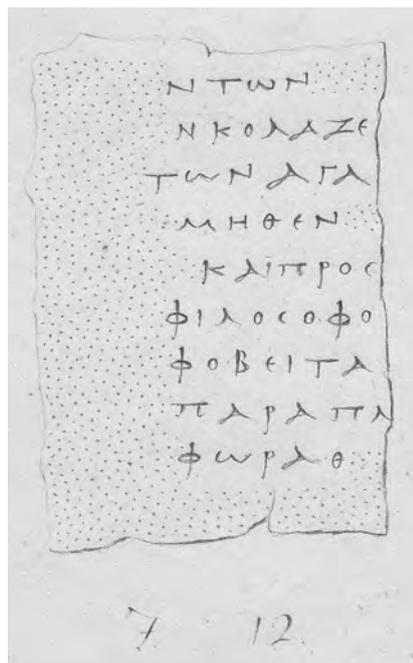 ΝΤωΝ
ΝΚΟΛΑΖΕ
ΤωΝΑΓΑ
ΜΗΘΕΝ
ΚΑΙΠΡΟϹ
ΦΙΛΟϹΟΦΟ
ΦΟΒΕΙΤΑ
ΠΑΡΑΠΛ
ΦωΡΑΘ
7 12.